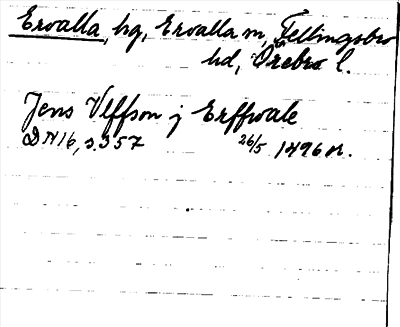 Ervalla, hg, Ervalla sn, Fellingsbro
hd, Örebro l.
Jens Vlffson j Erffwale
DN 16, s. 357 26/5 1496 or.